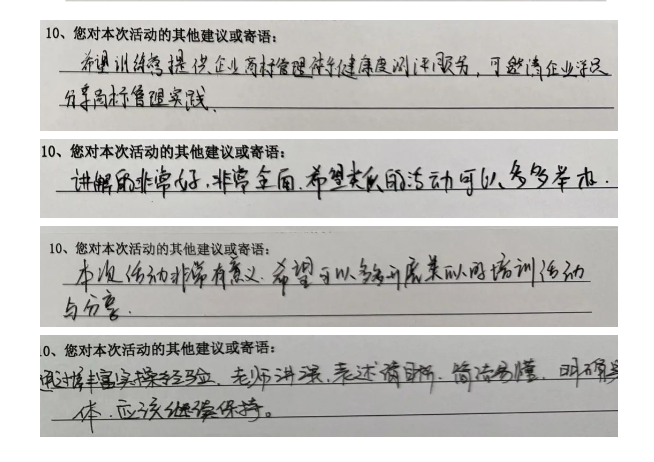 10、您对本次活动的其他建议或寄语：
希望训练营提供企业商标管理体系健康度测评服务，可邀请企业学员
分享商标管理实践.
10、您对本次活动的其他建议或寄语：
讲解的非常好.非常全面.希望类似的活动可以多多举办.
10、您对本次活动的其他建议或寄语：
本次活动非常有意义.希望可以多多开展类似的培训活动
与分享.
0、您对本次活动的其他建议或寄语：
丰富实操经验，老师讲课，表述清晰，简洁易懂，明确
体.应该继续保持。